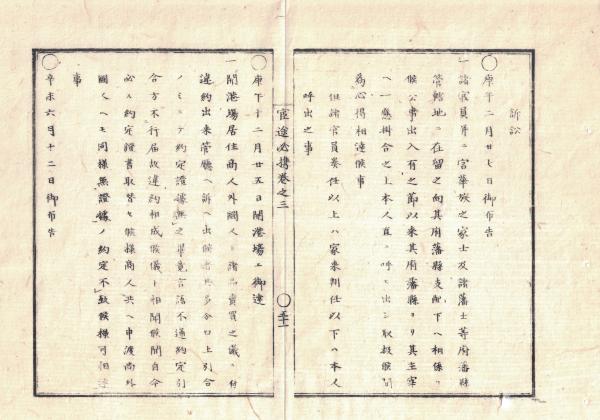 訴訟
◯庚午二月廿七日御布告
一諸官員并ニ宮華族之家士及諸藩士等府藩縣
管轄地ニ在留之向其府藩縣支配下ヘ相係リ
候公事出入有之節以来其府藩縣ヨリ其主宰
ヘ一應掛合之上本人直ニ呼ヒ出シ取扱候間
為心得相達候事
但諸官員奏任以上ハ家来判任以下ハ本人
呼出之事
宦途必携巻之三
◯庚午十二月廿五日開港場ニ御達
一開港場居住商人外國人ト諸品賣買之儀ニ付
違約出来管廳ヘ訴ヘ出候者共多分口上引合
ノミニテ約定證據無之畢竟言語不通約定引
合方不行届故違約相成候儀ト相聞候間自今
必ス約定證書取替セ候様商人共ヘ申渡尚外
國人ヘモ同様無證據ノ約定不致候様可相達
事
◯辛未六月十二日御布告